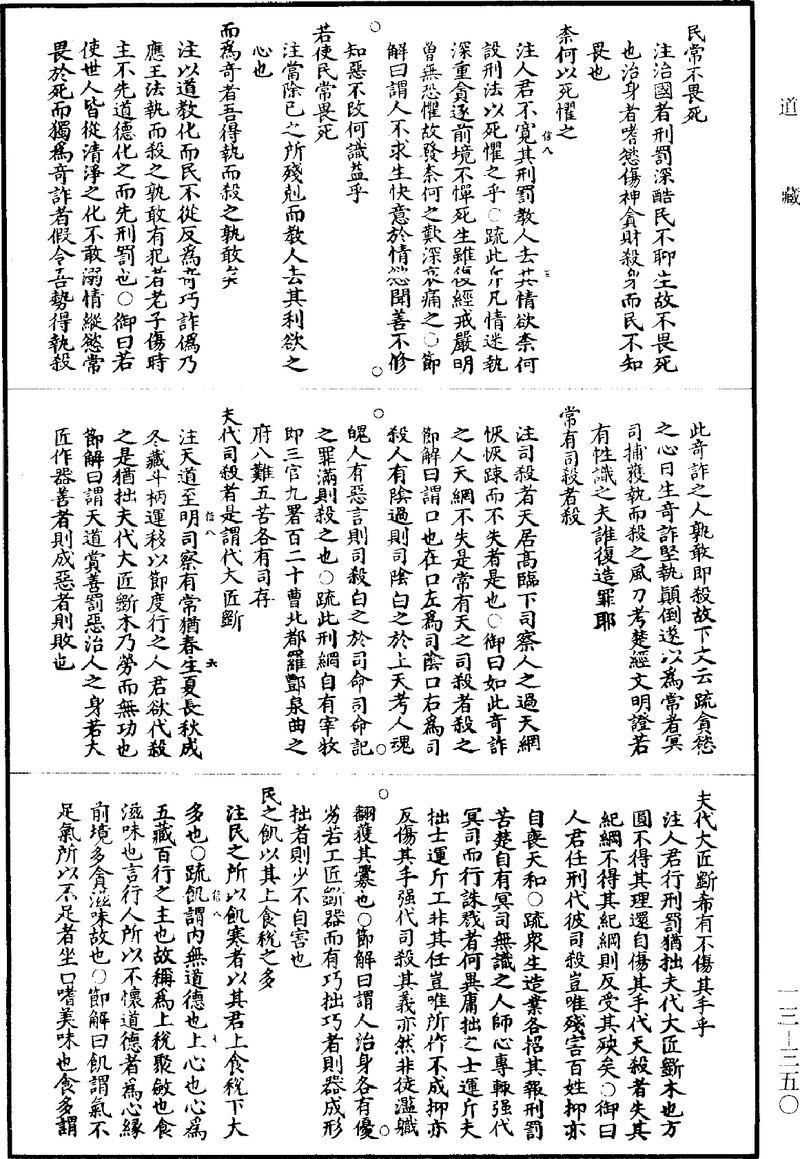 道藏
民常不畏死
注治國者刑罰深酷民不聊生故不畏死
也治身者嗜慾傷神貪財殺身而民不知
畏也
奈何以死懼之
注人君不寬其刑罰教人去其情欲奈何
設刑法以死懼之乎○疏此斤凡情迷執
深重貪逐前境不憚死生雖復經戒嚴明
曾無恐懼故發奈何之歎深哀痛之○節
解曰謂人不求生快意於情慾聞善不修
知惡不改何識益乎
若使民常畏死
注當除已之所殘剋而教人去其利欲之
心也
而為奇者吾得執而殺之孰敢矣
注以道教化而民不從反為奇巧詐偽乃
應王法執而殺之孰敢有犯者老子傷時
主不先道德化之而先刑罰也○御曰若
使世人皆從清淨之化不敢溺情縱慾常
畏於死而獨為奇詐者假令吾勢得執殺
此奇詐之人孰敢即殺故下文云疏貪慾
之心日生奇詐堅執顛倒遂以為常者冥
司捕獲執而殺之風刀考楚經文明證若
有性識之夫誰復造罪耶
常有司殺者殺
注司殺者天居高臨下司察人之過天網
恢恢踈而不失者是也○御曰如此奇詐
之人天網不失是常有天之司殺者殺之
節解曰謂口也在口左為司陰口右為司
殺人有陰過則司陰白之於上天考人魂
魄人有惡言則司殺白之於司命司命記
之罪滿則殺之也○疏此刑網自有宰牧
即三官九署百二十曹北都羅酆泉曲之
府八難五苦各有司存
夫代司殺者是謂代大匠斲
注天道至明司察有常猶春生夏長秋成
冬藏斗柄運移以節度行之人君欲代殺
之是猶拙夫代大匠斲木乃勞而無功也
節解曰謂天道賞善罰惡治人之身若大
匠作器善者則成惡者則敗也
夫代大匠斲希有不傷其手乎
注人君行刑罰猶拙夫代大匠斲木也方
圓不得其理還自傷其手代天殺者失其
紀綱不得其紀綱則反受其殃矣○御曰
人君任刑代彼司殺豈唯殘害百姓抑亦
自喪天和○疏眾生造業各招其報刑罰
苦楚自有冥司無識之人師心專輒強代
冥司而行誅戮者何異庸拙之士運斤夫
拙士運斤工非其任豈唯所作不成抑亦
反傷其手强代司殺其義亦然非徒濫職
翻獲其釁也○節解曰謂人治身各有優
劣若工匠斲器而有巧拙巧者則器成形
拙者則少不自害也
民之飢以其上食稅之多
注民之所以飢寒者以其君上食稅下大
多也○疏飢謂内無道德也上心也心為
五藏百行之主也故稱為上稅聚斂也食
滋味也言行人所以不懷道德者為心緣
前境多貪滋味故也○節解曰飢謂氣不
足氣所以不足者坐口嗜美味也食多謂
一三—三五〇